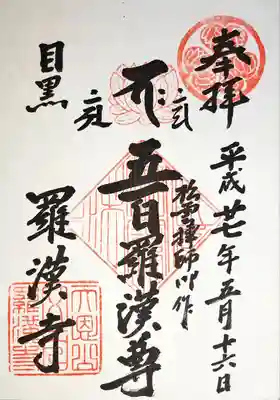 奉拝
平成廿七年五月十六日
松雲禅師御作
五百羅漢尊
目黒
羅漢寺